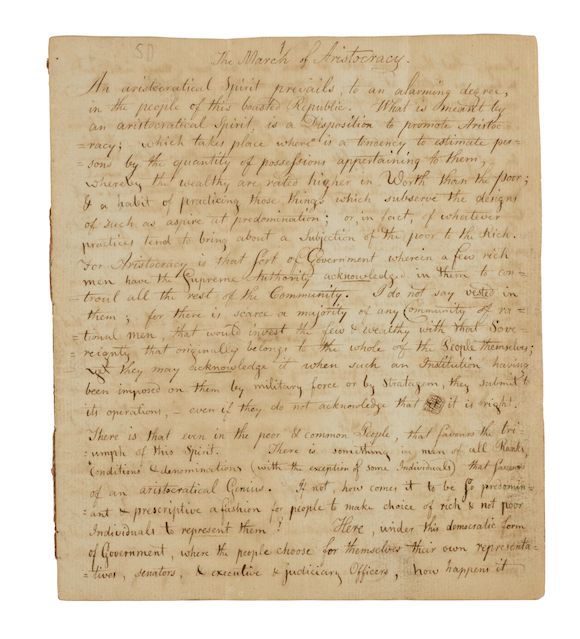 50
1
The March of Aristocracy.
An aristocratical Spirit prevails, to an alarming degree,
in the people of this boasted Republic. What is meant by
an aristocratical Spirit, is a Disposition to promote Aristoc-
=racy; which takes place where is a tendency to estimate per-
=sons by the quantity of possessions appertaining to them,
whereby the wealthy are rated higher in Worth than the poor;
& a habit of practicing those things which subserve the designs
of such as aspire at predomination; or, in fact, of whatever
practices tend to bring about a Subjection of the poor to the Rich.
For Aristocracy is that sort of Government wherein a few rich
men have the Supreme Authority acknowledged in them to con-
=troul all the rest of the Community. I do not say vested in
them; for there is scarce a majority of any Community of ra-
=tional men, that would invest the few & wealthy with that Sove-
=reignty that originally belongs to the whole of the People themselves;
yet they may acknowledge it when such an Institution having
been imposed on them by military force or by Stratagem, they submit to
its operations, – even if they do not acknowledge that it is right.
There is that even in the poor & common People, that favours the tri-
=umph of this Spirit. There is something in man of all Ranks,
Conditions & denominations (with the exception of some Individuals) that favours
of an aristocratical Genius. If not, how comes it to be so predomin-
=ant & prescriptive a fashion for people to make choice of rich & not poor
Individuals to represent them? Here, under this democratic form
of Government, where the people choose for themselves their own representa-
=tives, senators, & executive & judiciary Officers, how happens it